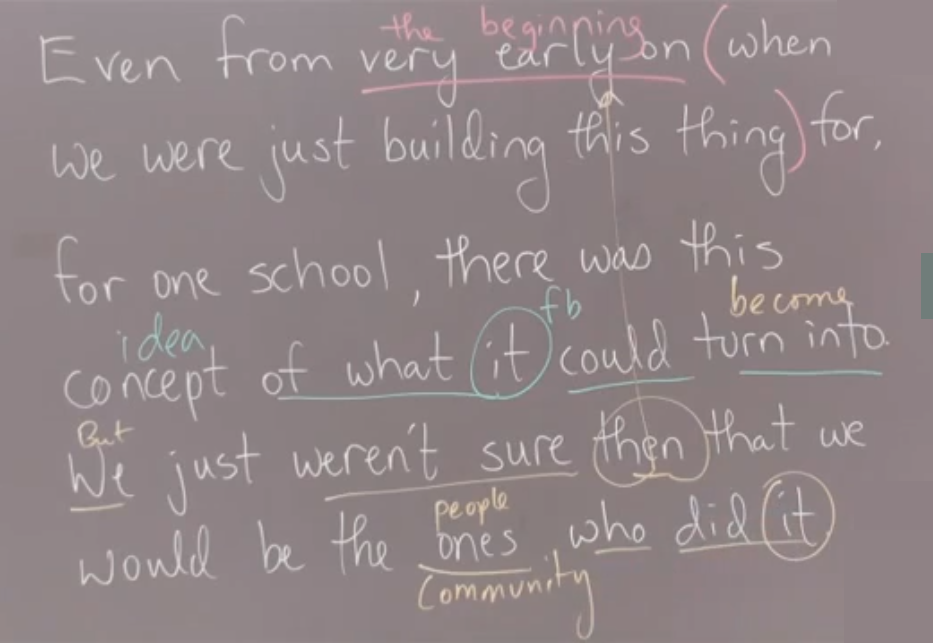 the beginning
Even from very early on (when
we were just building this thing) for,
for one school, there was this
idea fb become
concept of what it could turn into.
But
We just weren't sure then that we
people
would be the ones who did it
community